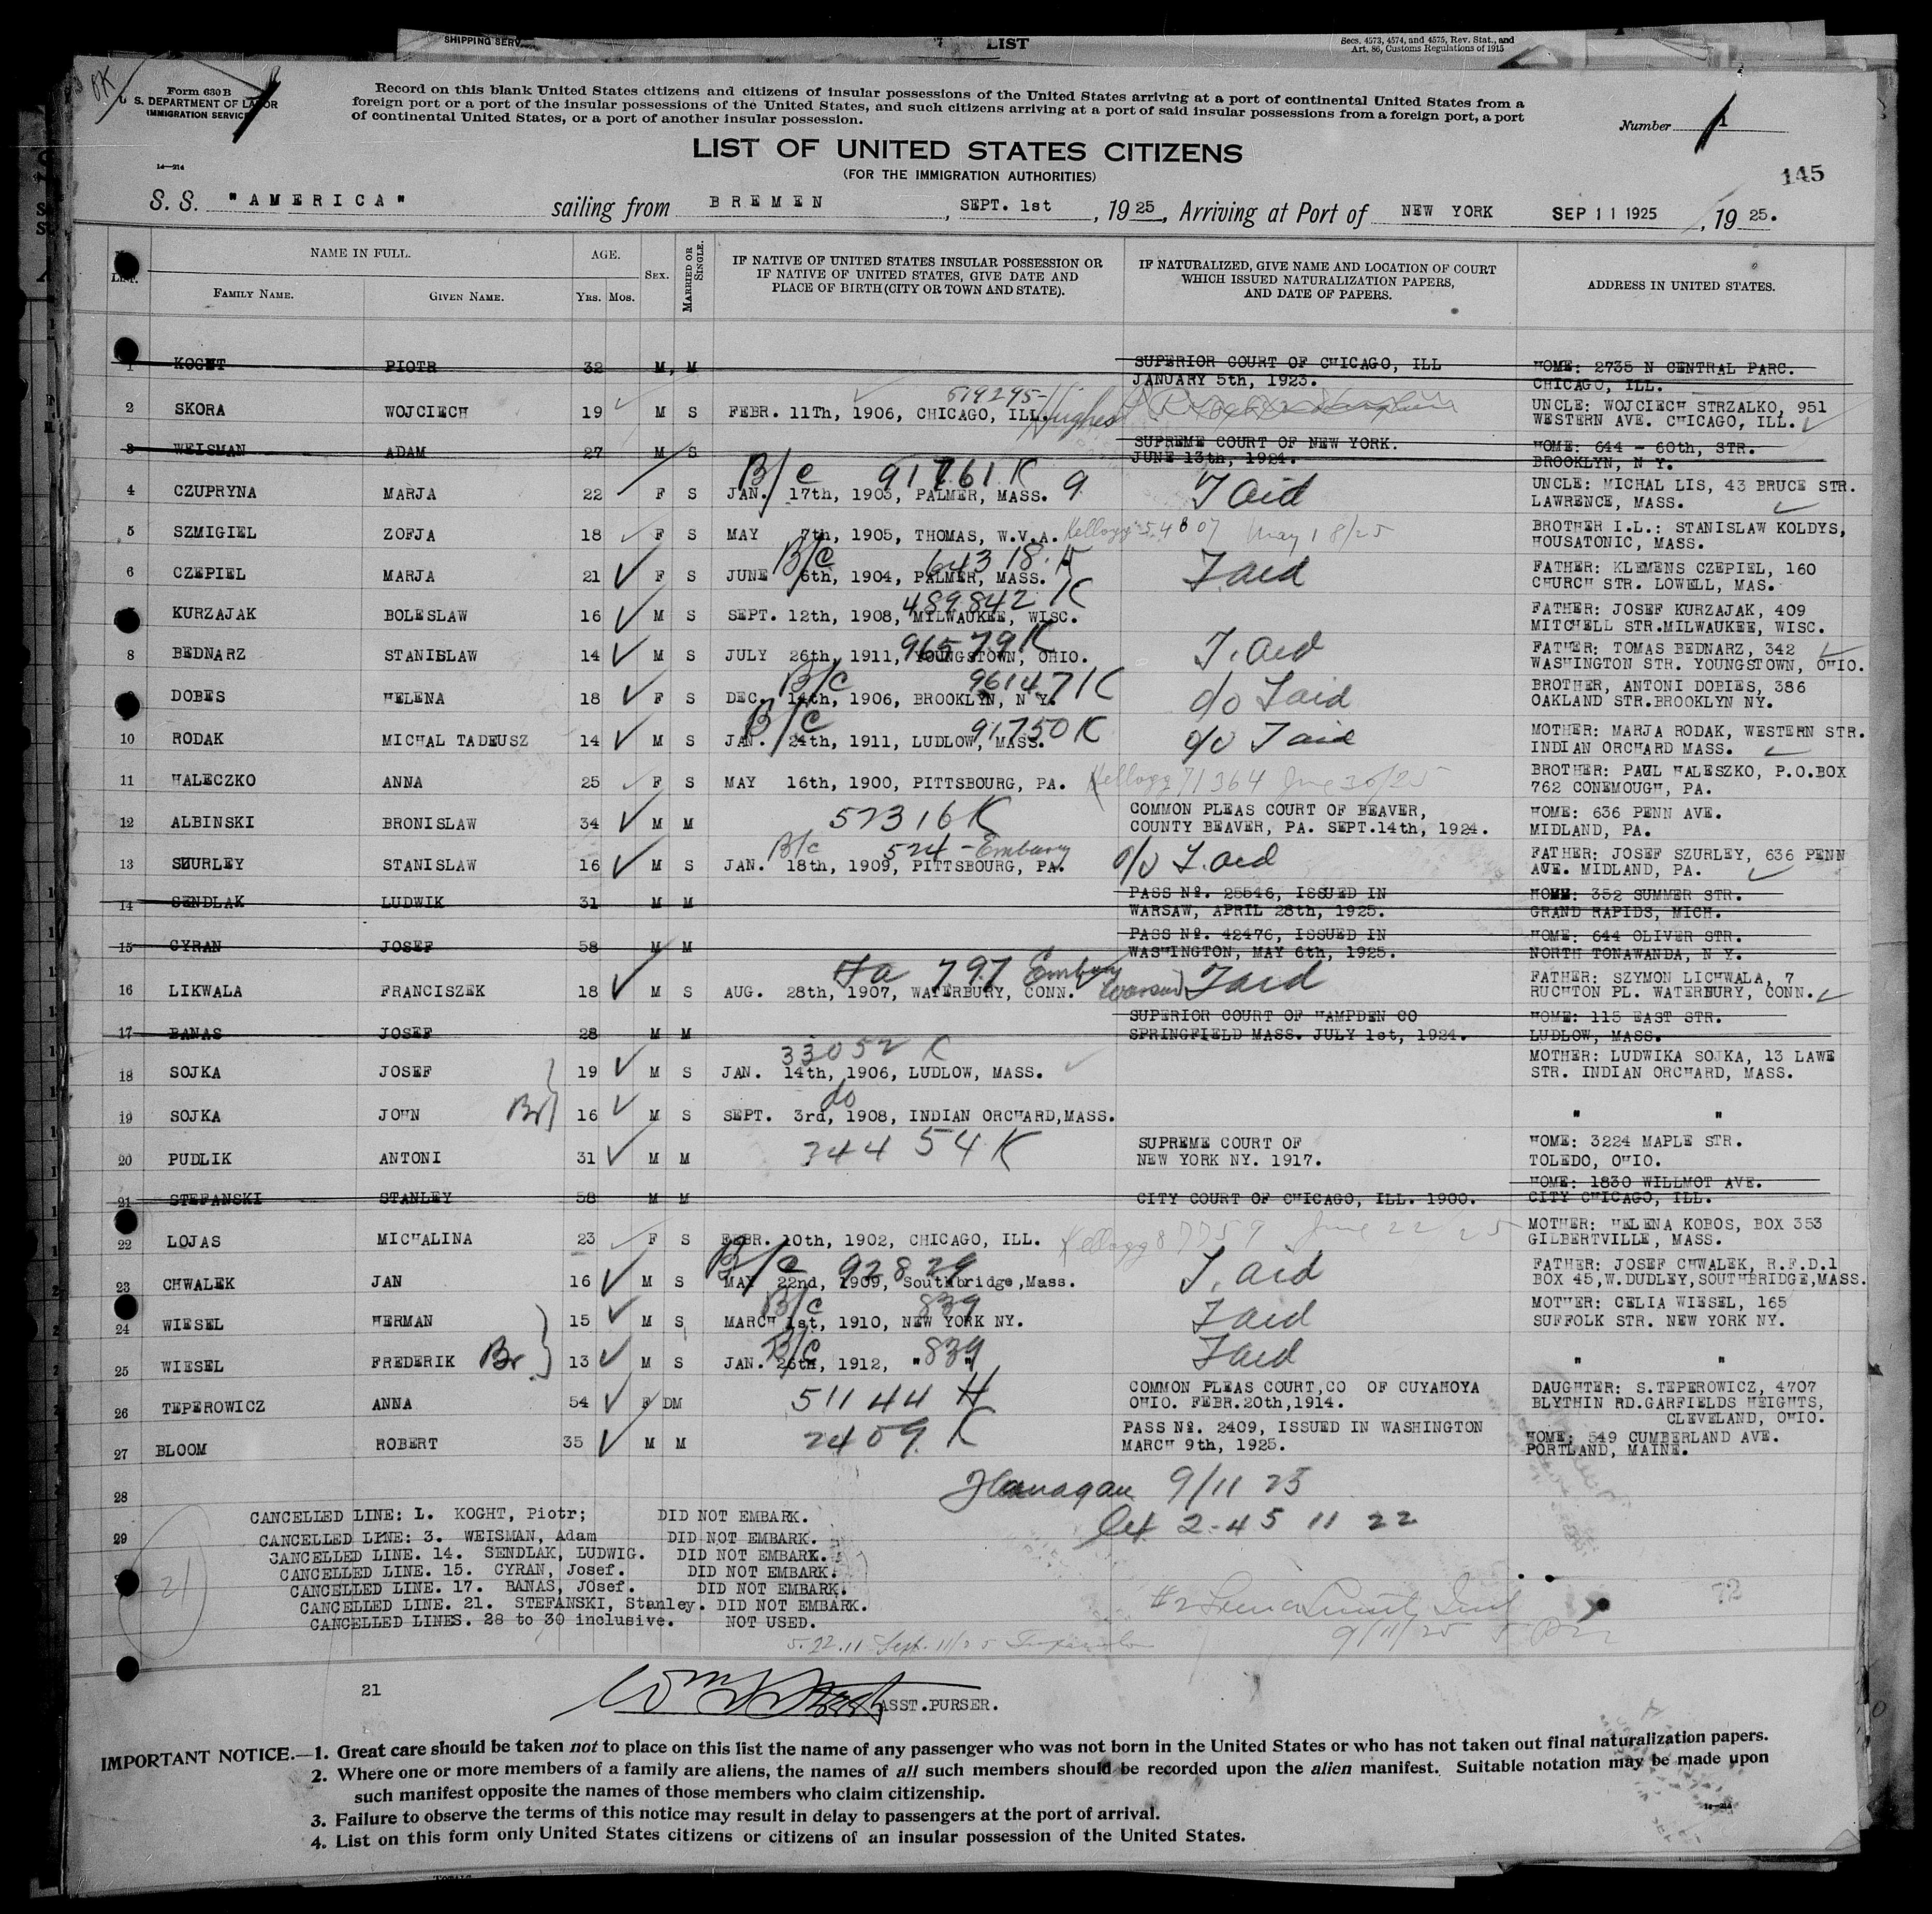 SHIPPING SERV
LIST
Secs. 4573, 4574, and 4575, Rev. Stat., and
Art. 86, Customs Regulations of 1915
Form 630 B
U. S. DEPARTMENT OF LABOR
IMMIGRATION SERVICE
14—214
Record on this blank United States citizens and citizens of insular possessions of the United States arriving at a port of continental United States from a
foreign port or a port of the insular possessions of the United States, and such citizens arriving at a port of said insular possessions from a foreign port, a port
of continental United States, or a port of another insular possession.
Number 1
LIST OF UNITED STATES CITIZENS
(FOR THE IMMIGRATION AUTHORITIES)
145
S. S. "AMERICA" sailing from BREMEN, SEPT. 1st, 1925, Arriving at Port of NEW YORK SEP 11 1925, 1925.
NAME IN FULL. AGE. SEX. MARRIED OR SINGLE.
FAMILY NAME. GIVEN NAME. YRS. MOS.
IF NATIVE OF UNITED STATES INSULAR POSSESSION OR
IF NATIVE OF UNITED STATES, GIVE DATE AND
PLACE OF BIRTH (CITY OR TOWN AND STATE).
IF NATURALIZED, GIVE NAME AND LOCATION OF COURT
WHICH ISSUED NATURALIZATION PAPERS,
AND DATE OF PAPERS.
ADDRESS IN UNITED STATES.
1 KOGHT PIOTR 32 M M SUPERIOR COURT OF CHICAGO, ILL HOME: 2735 N CENTRAL PARC.
JANUARY 5th, 1923. CHICAGO, ILL.
2 SKORA WOJCIECH 19 M S FEBR. 11Th, 1906, CHICAGO, ILL. Hughes UNCLE: WOJCIECH STRZALKO, 951
WESTERN AVE. CHICAGO, ILL.
3 WEISMAN ADAM 27 M S SUPREME COURT OF NEW YORK. HOME: 644 - 60th, STR.
JUNE 13th, 1924. BROOKLYN, N Y.
B/C 91761 K
4 CZUPRYNA MARJA 22 F S JAN. 17th, 1903, PALMER, MASS. 9 UNCLE: MICHAL LIS, 43 BRUCE STR.
LAWRENCE, MASS.
5 SZMIGIEL ZOFJA 18 F S MAY 7th, 1905, THOMAS, W.V.A. Kellogg 54807 May 18/25 BROTHER I.L.: STANISLAW KOLDYS,
HOUSATONIC, MASS.
B/C 64318 K
6 CZEPIEL MARJA 21 F S JUNE 6th, 1904, PALMER, MASS. FATHER: KLEMENS CZEPIEL, 160
CHURCH STR. LOWELL, MAS.
489842 K
KURZAJAK BOLESLAW 16 M S SEPT. 12th, 1908, MILWAUKEE, WISC. FATHER: JOSEF KURZAJAK, 409
MITCHELL STR.MILWAUKEE, WISC.
96579 K
8 BEDNARZ STANISLAW 14 M S JULY 26th, 1911, YOUNGSTOWN, OHIO. FATHER: TOMAS BEDNARZ, 342
WASHINGTON STR. YOUNGSTOWN, OHIO.
B/C 96147 K
DOBES HELENA 18 F S DEC. 14th, 1906, BROOKLYN, N Y. BROTHER, ANTONI DOBIES, 386
OAKLAND STR.BROOKLYN NY.
B/C 91750 K
10 RODAK MICHAL TADEUSZ 14 M S JAN. 24th, 1911, LUDLOW, MASS. MOTHER: MARJA RODAK, WESTERN STR.
INDIAN ORCHARD MASS.
11 HALECZKO ANNA 25 F S MAY 16th, 1900, PITTSBOURG, PA. Kellogg 71364 June 30/25 BROTHER: PAUL HALESZKO, P.O.BOX
762 CONEMOUGH, PA.
57316 K
12 ALBINSKI BRONISLAW 34 M M COMMON PLEAS COURT OF BEAVER, HOME: 636 PENN AVE.
COUNTY BEAVER, PA. SEPT.14th, 1924. MIDLAND, PA.
B/C 524 - Embassy
13 SZURLEY STANISLAW 16 M S JAN. 18th, 1909, PITTSBOURG, PA. FATHER: JOSEF SZURLEY, 636 PENN
AVE. MIDLAND, PA.
14 SENDLAK LUDWIK 31 M M PASS Nº. 25546, ISSUED IN HOME: 352 SUMMER STR.
WARSAW, APRIL 28th, 1925. GRAND RAPIDS, MICH.
15 CYRAN JOSEF 58 M M PASS Nº. 42476, ISSUED IN HOME: 644 OLIVER STR.
WASHINGTON, MAY 6th, 1925. NORTH TONAWANDA, N Y.
797 Embassy
16 LIKWALA FRANCISZEK 18 M S AUG. 28th, 1907, WATERBURY, CONN. Warsaw FATHER: SZYMON LICHWALA, 7
RUCHTON PL. WATERBURY, CONN.
17 BANAS JOSEF 28 M M SUPERIOR COURT OF HAMPDEN CO HOME: 115 EAST STR.
SPRINGFIELD MASS. JULY 1st, 1924. LUDLOW, MASS.
33052 K
18 SOJKA JOSEF 19 M S JAN. 14th, 1906, LUDLOW, MASS. MOTHER: LUDWIKA SOJKA, 13 LAWE
STR. INDIAN ORCHARD, MASS.
do
19 SOJKA JOHN Br 16 M S SEPT. 3rd, 1908, INDIAN ORCHARD,MASS. " "
34454 K
20 PUDLIK ANTONI 31 M M SUPREME COURT OF HOME: 3224 MAPLE STR.
NEW YORK NY. 1917. TOLEDO, OHIO.
21 STEFANSKI STANLEY 58 M M CITY COURT OF CHICAGO, ILL. 1900. HOME: 1830 WILLMOT AVE.
CITY CHICAGO, ILL.
22 LOJAS MICHALINA 23 F S FEBR. 10th, 1902, CHICAGO, ILL. Kellogg 87759 June 22/25 MOTHER: HELENA KOBOS, BOX 353
GILBERTVILLE, MASS.
B/C 92829
23 CHWALEK JAN 16 M S MAY 22nd, 1909, Southbridge,Mass. FATHER: JOSEF CHWALEK, R.F.D.1
BOX 45,W.DUDLEY,SOUTHBRIDGE,MASS.
B/C 839
24 WIESEL HERMAN 15 M S MARCH 1st, 1910, NEW YORK NY. MOTHER: CELIA WIESEL, 165
SUFFOLK STR. NEW YORK NY.
B/C 839
25 WIESEL FREDERIK Br 13 M S JAN. 26th, 1912, " " " "
51144 K
26 TEPEROWICZ ANNA 54 F DM COMMON PLEAS COURT,CO OF CUYAHOYA DAUGHTER: S.TEPEROWICZ, 4707
OHIO. FEBR.20th,1914. BLYTHIN RD.GARFIELDS HEIGHTS,
CLEVELAND, OHIO.
2409 K
27 BLOOM ROBERT 35 M M PASS Nº. 2409, ISSUED IN WASHINGTON HOME: 549 CUMBERLAND AVE.
MARCH 9th, 1925. PORTLAND, MAINE.
28 Flanagan 9/11 25
CANCELLED LINE: 1. KOGHT, Piotr; DID NOT EMBARK.
29 CANCELLED LINE: 3. WEISMAN, Adam DID NOT EMBARK.
CANCELLED LINE. 14. SENDLAK, LUDWIG. DID NOT EMBARK.
CANCELLED LINE. 15. CYRAN, Josef. DID NOT EMBARK.
CANCELLED LINE. 17. BANAS, JOsef. DID NOT EMBARK.
CANCELLED LINE. 21. STEFANSKI, Stanley. DID NOT EMBARK.
CANCELLED LINES. 28 to 30 inclusive. NOT USED.
21
21
ASST.PURSER.
IMPORTANT NOTICE.—1. Great care should be taken not to place on this list the name of any passenger who was not born in the United States or who has not taken out final naturalization papers.
2. Where one or more members of a family are aliens, the names of all such members should be recorded upon the alien manifest. Suitable notation may be made upon
such manifest opposite the names of those members who claim citizenship.
3. Failure to observe the terms of this notice may result in delay to passengers at the port of arrival.
4. List on this form only United States citizens or citizens of an insular possession of the United States.
14—214